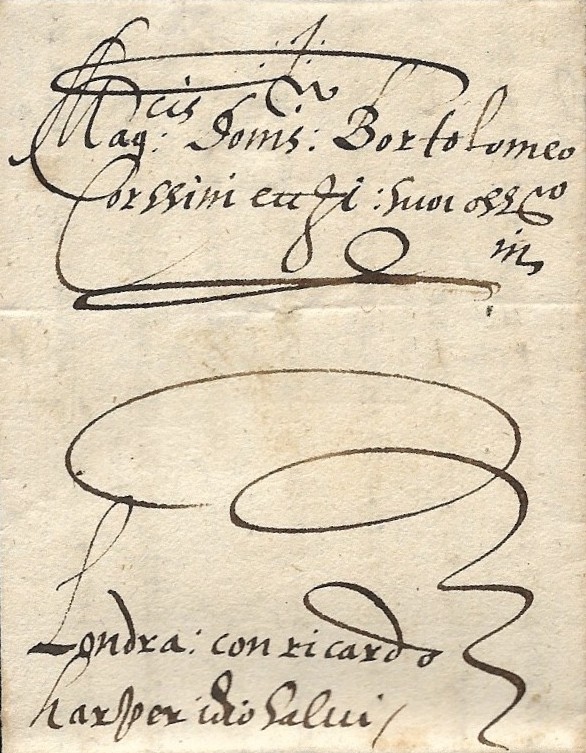 Mag:cis Domis: Bortolomeo
Corssini ecc
in
Londra: con ricardo
harper idio salui